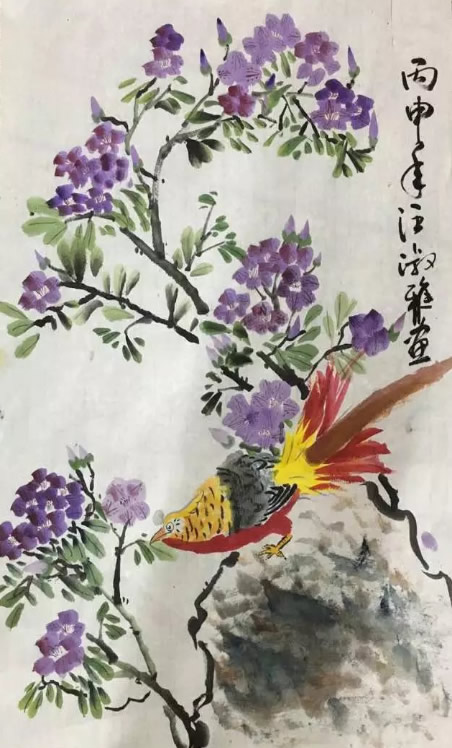 丙申年汪淑雅画